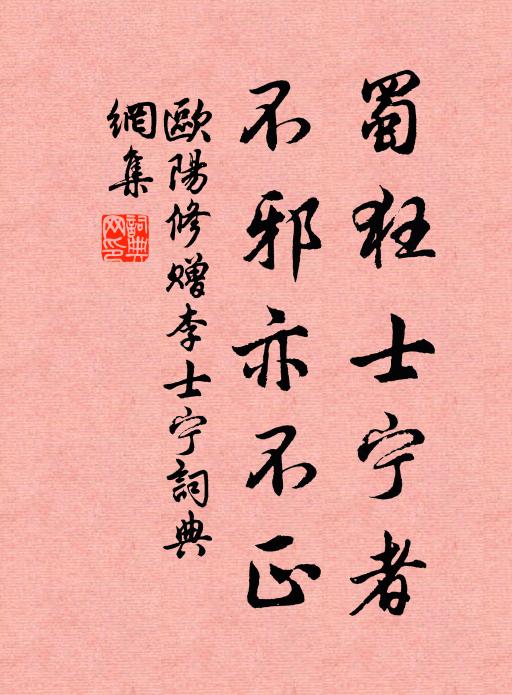 蜀狂士宁者
不邪亦不正
歐陽修赠李士宁詞典
網集
詞典网印